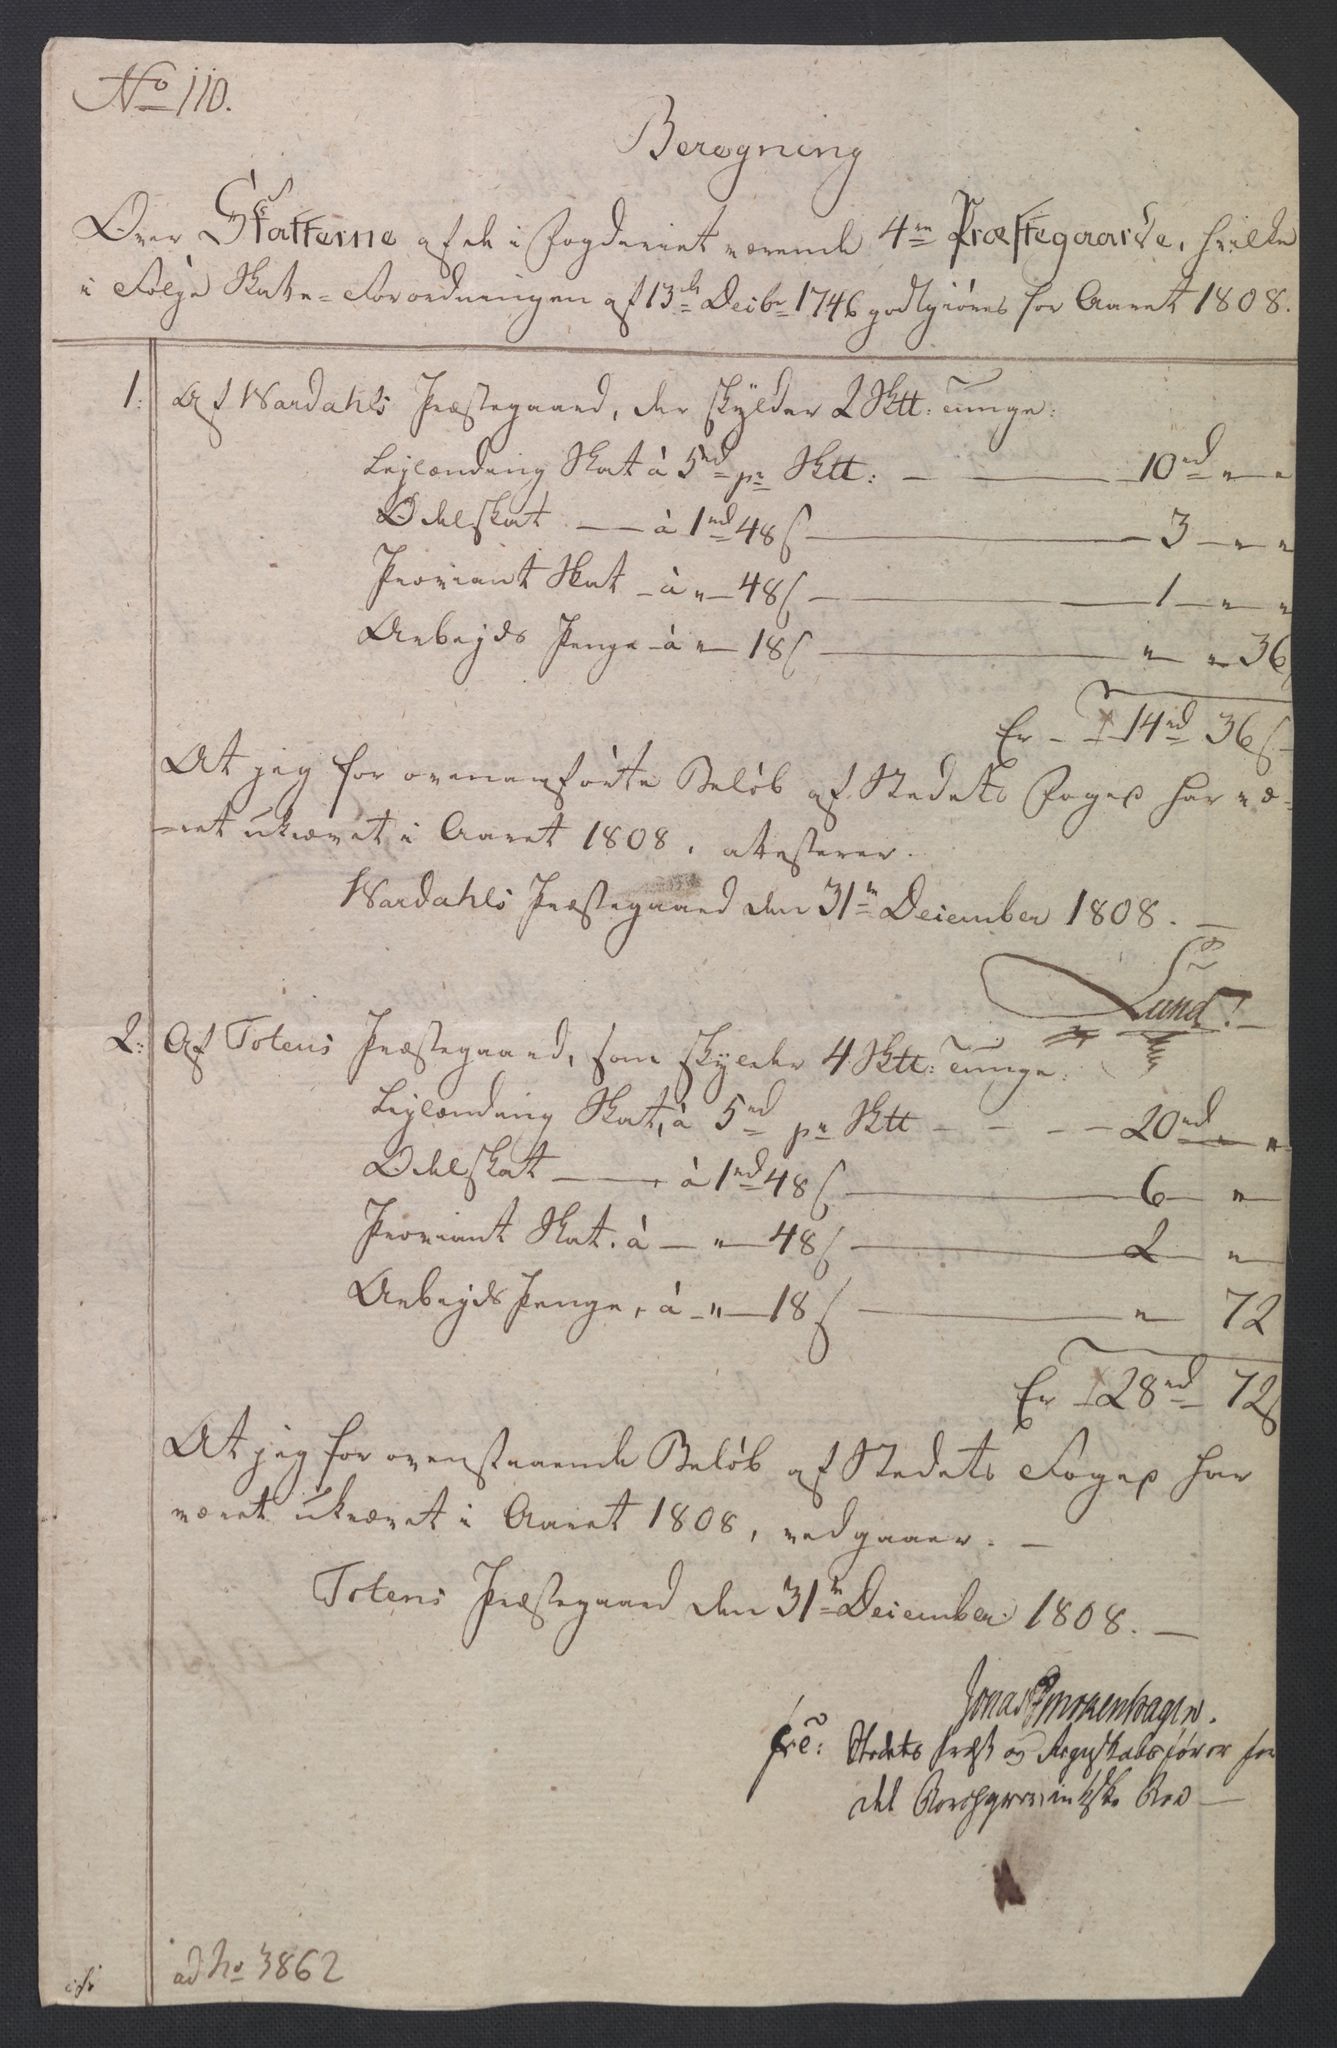 No 110.
Beregning
Over Skatterne af de i Fogderiet værende 4re Præstegaarde, hvilke
i Følge Skatte-Forordningen af 13de Decbr 1746 godtgiøres for Aaret 1808.
1. Af Wardahls Præstegaard, der skylder 2 Sktt: tunge:
Leylænding Skat à 5rd pr Sktt: — 10rd " "
Odelskat — à 1rd 48 s — 3 — " "
Proviant Skat — à " — 48 s — 1 — " "
Arbejds Penge — à " — 18 s — " " 36
Er — 14rd 36 s
At jeg for ovenanførte Beløb af Stedets Foged har væ-
ret ukrævet i Aaret 1808, attesterer.
Wardahls Præstegaard den 31te December 1808. —
Lund.
2. Af Totens Præstegaard, som skylder 4 Sktt: tunge:
Leylænding Skat, à 5rd pr Sktt — 20rd " "
Odelskat — à 1rd 48 s — 6 — "
Proviant Skat. à — " — 48 s — 2 — "
Arbejds Penge, à — " — 18 s — " — 72
Er 28rd 72 s
At jeg for ovenstaaende Beløb af Stedets Foged har
været ukrævet i Aaret 1808, vedgaaer. —
Totens Præstegaard den 31te December 1808. —
Jonas
Stedets Præst og Regnskabsfører for
det
ad No 3862